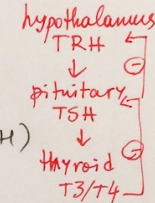 hypothalamus
TRH
↓
⊖
pituitary
TSH
H)
↓
⊖
thyroid
T3/T4